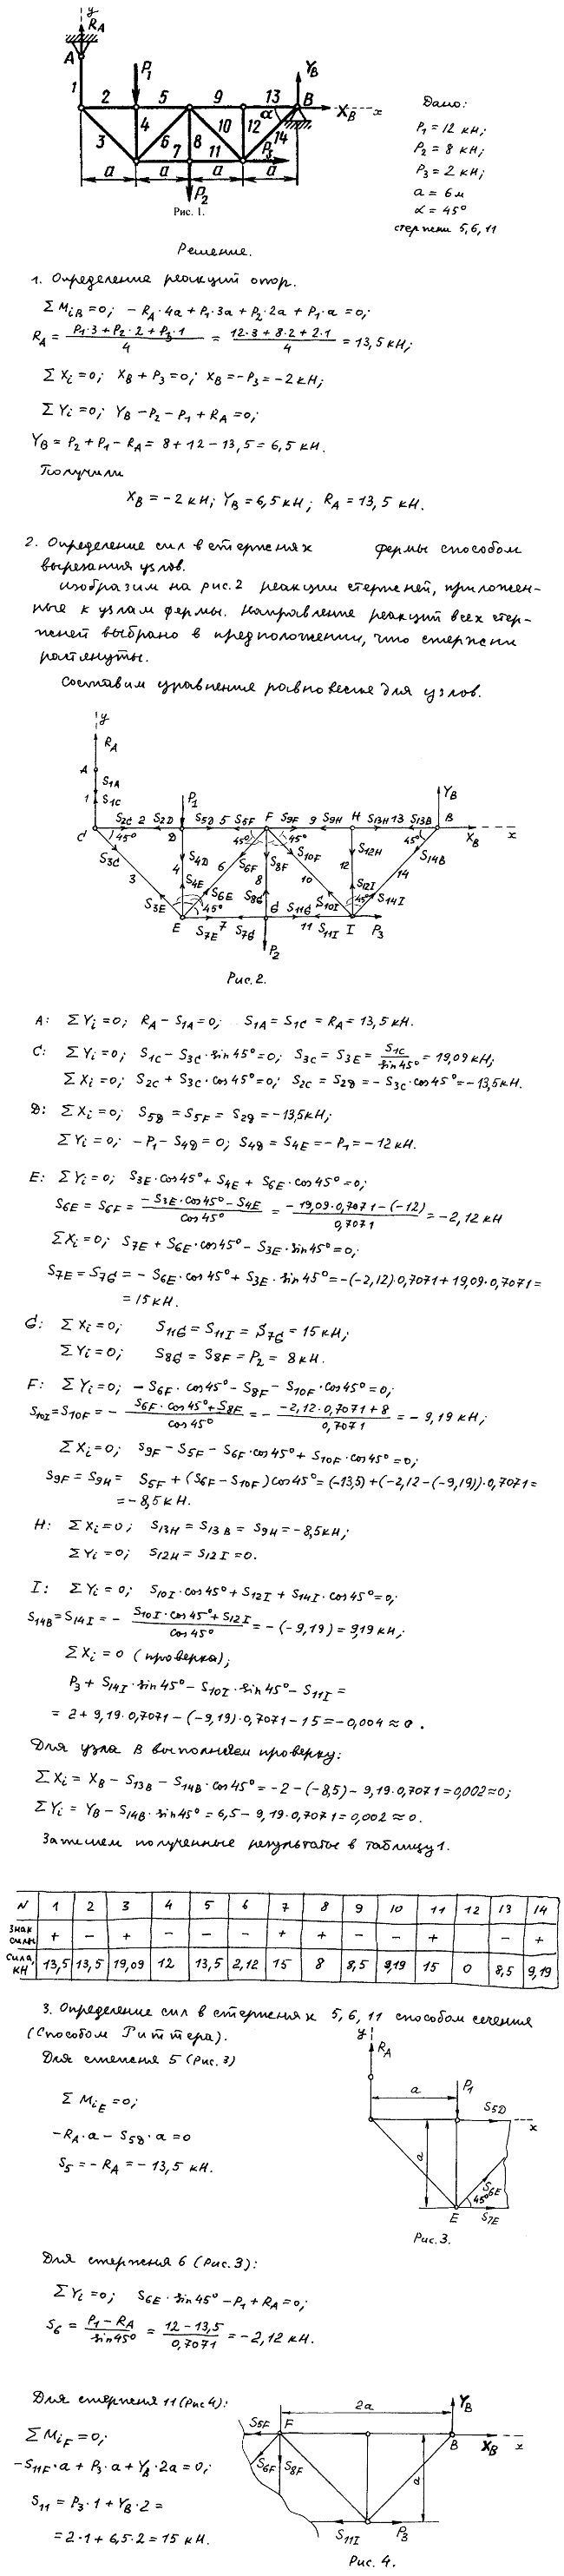 y
R_A
A
P_1
Y_B
1
2
5
9
13
B
X_B
x
α
3
4
6
7
8
10
11
12
14
P_3
a
a
a
a
P_2
Рис. 1.
Дано:
P_1 = 12 кн;
P_2 = 8 кн;
P_3 = 2 кн;
a = 6 м
α = 45°
стержни 5, 6, 11
Решение.
1. Определение реакций опор.
ΣM_iB = 0; - R_A·4a + P_1·3a + P_2·2a + P_1·a = 0;
R_A = (P_1·3 + P_2·2 + P_3·1)/4 = (12·3 + 8·2 + 2·1)/4 = 13,5 кН;
ΣX_i = 0; X_B + P_3 = 0; X_B = -P_3 = -2 кН;
ΣY_i = 0; Y_B - P_2 - P_1 + R_A = 0;
Y_B = P_2 + P_1 - R_A = 8 + 12 - 13,5 = 6,5 кН.
Получили
X_B = -2 кН; Y_B = 6,5 кН; R_A = 13,5 кН.
2. Определение сил в стержнях фермы способом
вырезания узлов.
Изобразим на рис.2 реакции стержней, приложен-
ные к узлам фермы. Направление реакций всех стер-
жней выбрано в предположении, что стержни
растянуты.
Составим уравнения равновесия для узлов.
y
R_A
A
S_1A
1
S_1C
P_1
Y_B
S_2C 2 S_2D S_5D 5 S_5F F S_9F 9 S_9H H S_13H 13 S_13B B
C
45°
D
45°
45°
45°
X_B
x
S_3C
3
S_3E
4
S_4D
S_4E
6
S_6F
S_6E
S_8F
8
S_8G
S_10F
10
S_10I
12
S_12H
S_12I
S_14B
14
S_14I
45°
45°
E
S_7E
7
S_7G
G
S_11G
11
S_11I
I
P_3
P_2
Рис. 2.
A: ΣY_i = 0; R_A - S_1A = 0; S_1A = S_1C = R_A = 13,5 кН.
C: ΣY_i = 0; S_1C - S_3C·sin45° = 0; S_3C = S_3E = S_1C/sin45° = 19,09 кН;
ΣX_i = 0; S_2C + S_3C·cos45° = 0; S_2C = S_2D = - S_3C·cos45° = -13,5 кН.
D: ΣX_i = 0; S_5D = S_5F = S_2D = -13,5 кН;
ΣY_i = 0; -P_1 - S_4D = 0; S_4D = S_4E = -P_1 = -12 кН.
E: ΣY_i = 0; S_3E·cos45° + S_4E + S_6E·cos45° = 0;
S_6E = S_6F = (-S_3E·cos45° - S_4E)/cos45° = (-19,09·0,7071 - (-12))/0,7071 = -2,12 кН
ΣX_i = 0; S_7E + S_6E·cos45° - S_3E·sin45° = 0;
S_7E = S_7G = - S_6E·cos45° + S_3E·sin45° = -(-2,12)0,7071 + 19,09·0,7071 =
= 15 кН.
G: ΣX_i = 0; S_11G = S_11I = S_7G = 15 кН;
ΣY_i = 0; S_8G = S_8F = P_2 = 8 кН.
F: ΣY_i = 0; - S_6F·cos45° - S_8F - S_10F·cos45° = 0;
S_10I = S_10F = - (S_6F·cos45° + S_8F)/cos45° = - (-2,12·0,7071 + 8)/0,7071 = -9,19 кН;
ΣX_i = 0; S_9F - S_5F - S_6F·cos45° + S_10F·cos45° = 0;
S_9F = S_9H = S_5F + (S_6F - S_10F)cos45° = (-13,5) + (-2,12 - (-9,19))·0,7071 =
= -8,5 кН.
H: ΣX_i = 0; S_13H = S_13B = S_9H = -8,5 кН;
ΣY_i = 0; S_12H = S_12I = 0.
I: ΣY_i = 0; S_10I·cos45° + S_12I + S_14I·cos45° = 0;
S_14B = S_14I = - (S_10I·cos45° + S_12I)/cos45° = -(-9,19) = 9,19 кН;
ΣX_i = 0 (проверка);
P_3 + S_14I·sin45° - S_10I·sin45° - S_11I =
= 2 + 9,19·0,7071 - (-9,19)·0,7071 - 15 = -0,004 ≈ 0.
Для узла B выполняем проверку:
ΣX_i = X_B - S_13B - S_14B·cos45° = -2 - (-8,5) - 9,19·0,7071 = 0,002 ≈ 0;
ΣY_i = Y_B - S_14B·sin45° = 6,5 - 9,19·0,7071 = 0,002 ≈ 0.
Запишем полученные результаты в таблицу 1.
N 1 2 3 4 5 6 7 8 9 10 11 12 13 14
Знак силы + - + - - - + + - - + - +
Сила, кН 13,5 13,5 19,09 12 13,5 2,12 15 8 8,5 9,19 15 0 8,5 9,19
3. Определение сил в стержнях 5, 6, 11 способом сечения
(способом Риттера).
Для стержня 5 (Рис.3)
ΣM_iE = 0;
-R_A·a - S_5D·a = 0
S_5 = -R_A = -13,5 кН.
y
R_A
a
P_1
S_5D
x
a
S_6E
45°
E
S_7E
Рис. 3.
Для стержня 6 (Рис.3):
ΣY_i = 0; S_6E·sin45° - P_1 + R_A = 0;
S_6 = (P_1 - R_A)/sin45° = (12 - 13,5)/0,7071 = -2,12 кН.
Для стержня 11 (Рис4):
ΣM_iF = 0;
-S_11F·a + P_3·a + Y_B·2a = 0;
S_11 = P_3·1 + Y_B·2 =
= 2·1 + 6,5·2 = 15 кН.
S_5F
F
2a
Y_B
B
X_B
x
S_6F
S_8F
a
S_11I
P_3
Рис. 4.